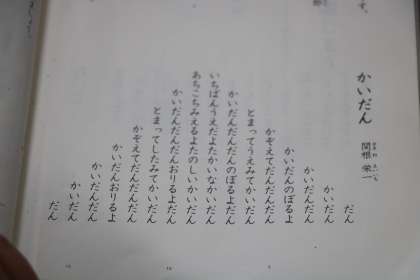 かいだん
関根 栄一
せきね えいいち
だん
かいだん
かいだんだん
かいだんのぼるよ
かぞえてだんだんだん
とまってうえみてかいだん
かいだんだんだんのぼるよだん
いちばんうえだよたかいなかいだん
あちこちみえるよたのしいかいだん
かいだんだんだんおりるよだん
とまってしたみてかいだん
かぞえてだんだんだん
かいだんおりるよ
かいだんだん
かいだん
だん